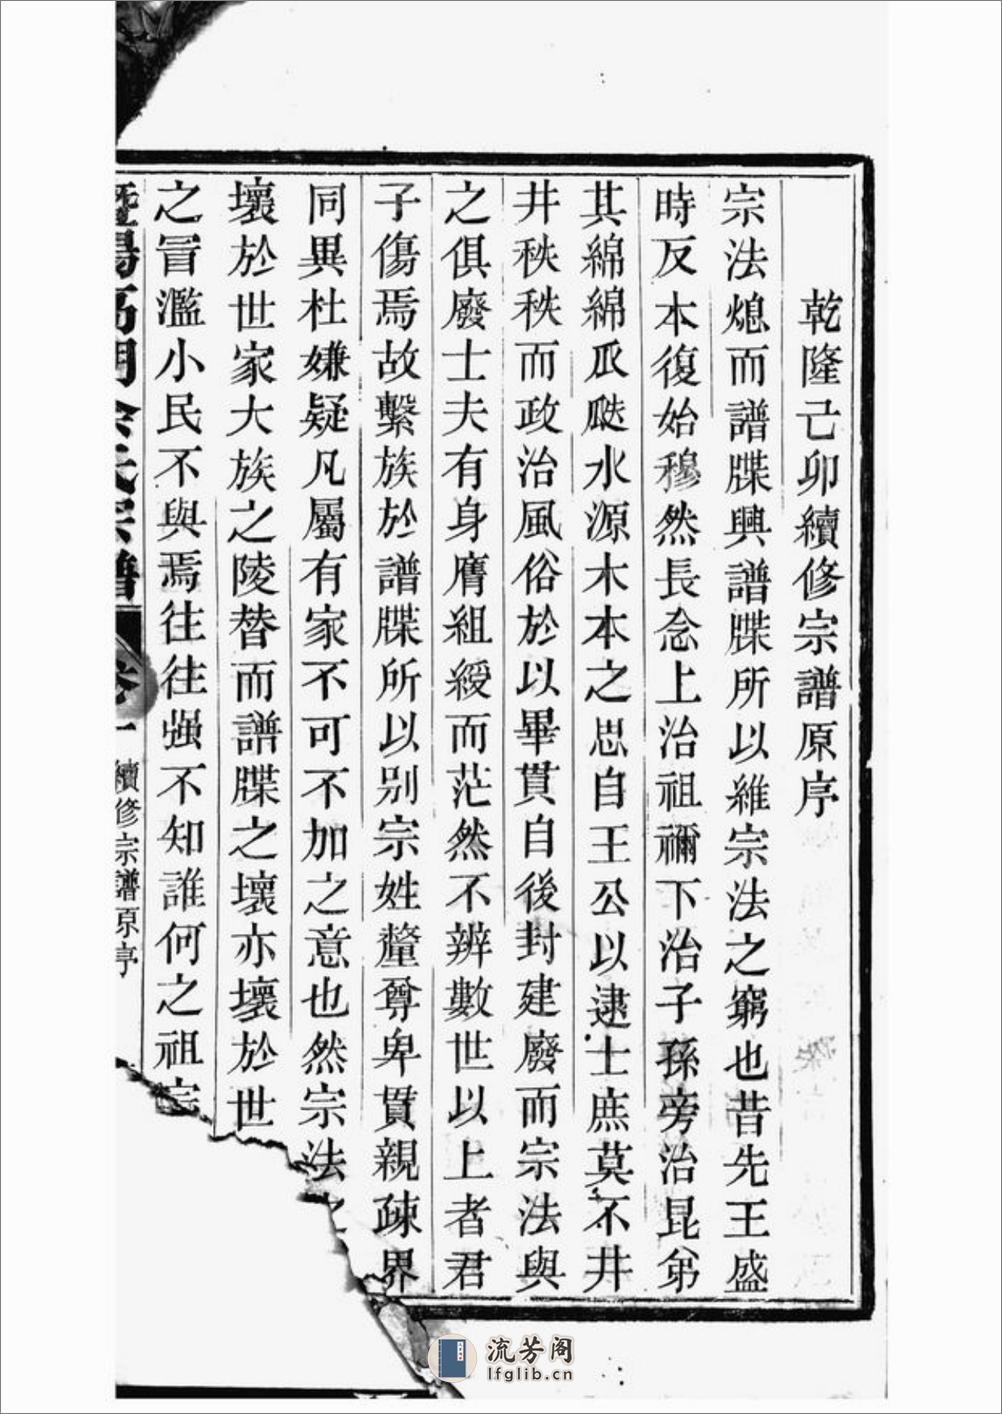 乾隆己卯續修宗譜原序
宗法熄而譜牒興譜牒所以維宗法之窮也昔先王盛
時反本復始穆然長念上治祖禰下治子孫旁治昆弟
其綿綿瓜瓞水源木本之思自王公以逮士庶莫不井
井秩秩而政治風俗於以畢貫自後封建廢而宗法與
之俱廢士夫有身膺組綬而茫然不辨數世以上者君
子傷焉故繫族於譜牒所以別宗姓釐尊卑貫親疎界
同異杜嫌疑凡屬有家不可不加之意也然宗法之
壞於世家大族之陵替而譜牒之壞亦壞於世
之冒濫小民不與焉往往强不知誰何之祖宗
暨陽高湖余氏宗譜 卷一 續修宗譜原序
流芳阁
lfglib.cn